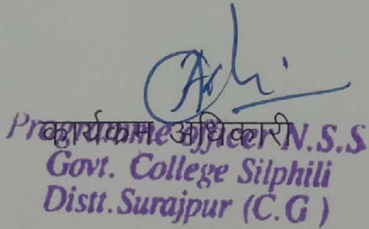 कार्यक्रम अधिकारी
Programme Officer N.S.S
Govt. College Silphili
Distt.Surajpur (C.G )